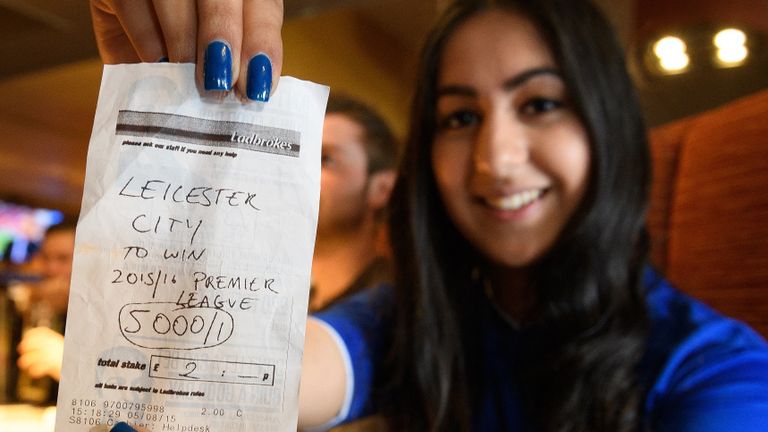 Ladbrokes
please ask our staff if you need any help
LEICESTER
CITY
TO WIN
2015/16 PREMIER
LEAGUE
5000/1
total stake £ 2 : — p
all bets are subject to Ladbrokes rules
8106 9700795998 2.00 C
15:18:29 05/08/15
S8106 Cashier: Helpdesk